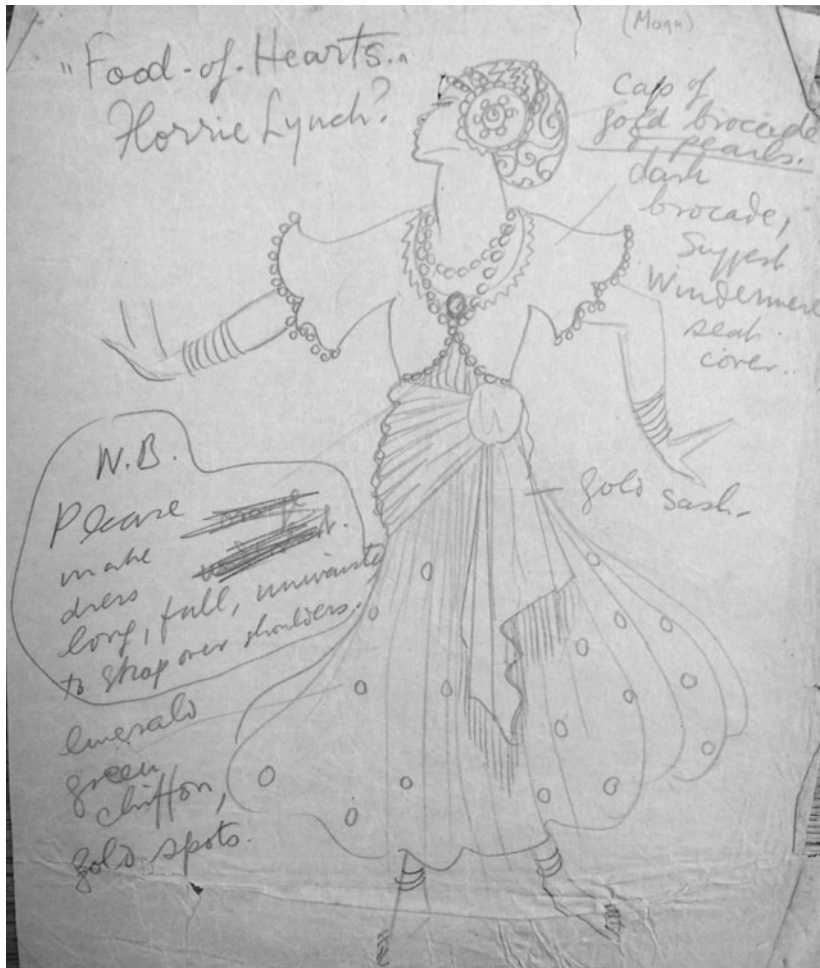 "Food-of-Hearts."
Florrie Lynch?
(Mogu)
Cap of
gold brocade
& pearls.
dark
brocade,
Suggest
Windermere
seat
cover.
gold sash.
N.B.
Please
make
dress
long, full, unwaisted
to strap over shoulders.
emerald
green
chiffon,
gold spots.